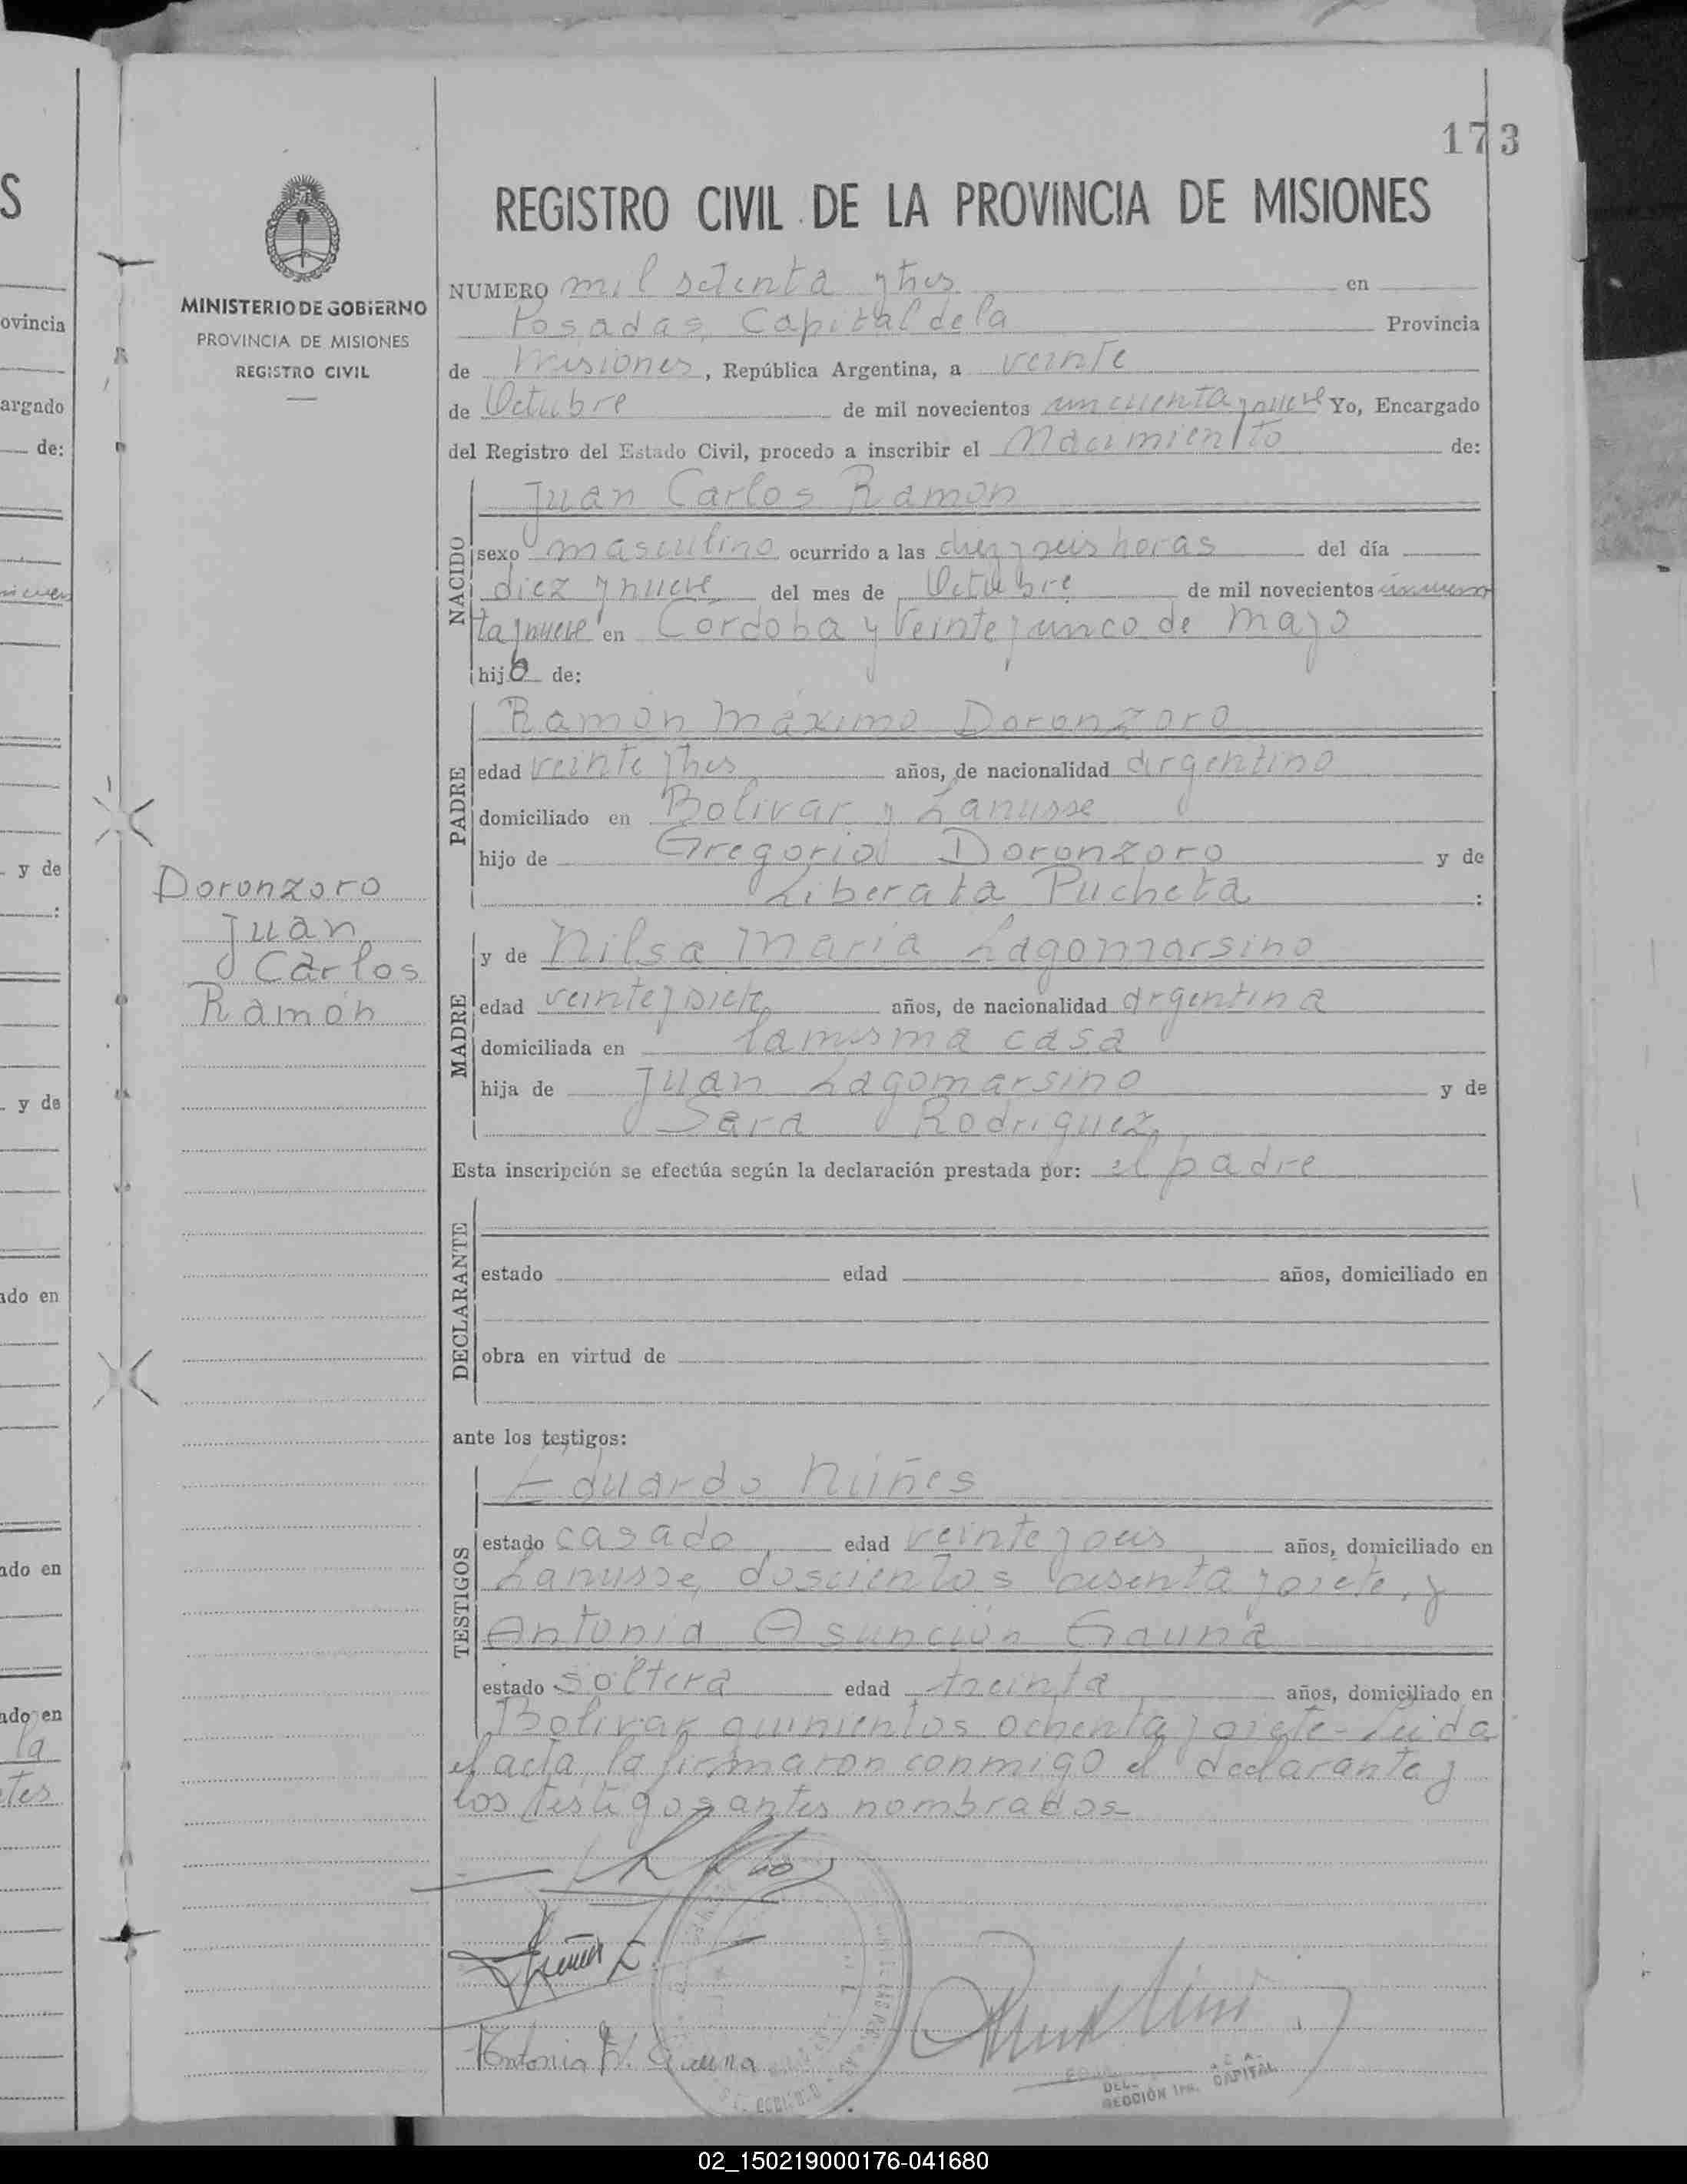 173
REGISTRO CIVIL DE LA PROVINCIA DE MISIONES
MINISTERIO DE GOBIERNO
PROVINCIA DE MISIONES
REGISTRO CIVIL
Doronzoro
Juan
Carlos
Ramón
NUMERO mil setenta y tres en
Posadas, Capital de la Provincia
de Misiones, República Argentina, a veinte
de Octubre de mil novecientos cincuenta y nueve Yo, Encargado
del Registro del Estado Civil, procedo a inscribir el Nacimiento de:
NACIDO
Juan Carlos Ramón
sexo masculino ocurrido a las diez y seis horas del día
diez y nueve del mes de Octubre de mil novecientos cincuen
ta y nueve en Córdoba y Veinte y cinco de Mayo
hijo de:
PADRE
Ramón Máximo Doronzoro
edad veinte y tres años, de nacionalidad argentino
domiciliado en Bolivar y Lanusse
hijo de Gregorio Doronzoro y de
Liberata Pucheta :
MADRE
y de Nilsa Maria Lagomarsino
edad veinte y siete años, de nacionalidad argentina
domiciliada en la misma casa
hija de Juan Lagomarsino y de
Sara Rodriguez
Esta inscripción se efectúa según la declaración prestada por: el padre
DECLARANTE
estado edad años, domiciliado en
obra en virtud de
ante los testigos:
TESTIGOS
Eduardo Núñes
estado casado, edad veinte y seis años, domiciliado en
Lanusse, doscientos sesenta y siete, y
Antonia Asunción Gauna
estado soltera edad treinta, años, domiciliado en
Bolivar quinientos ochenta y siete- Leida
el acta, la firmaron conmigo el declarante y
los testigos antes nombrados
Antonia A. Gauna
CAPITAL
02_150219000176-041680